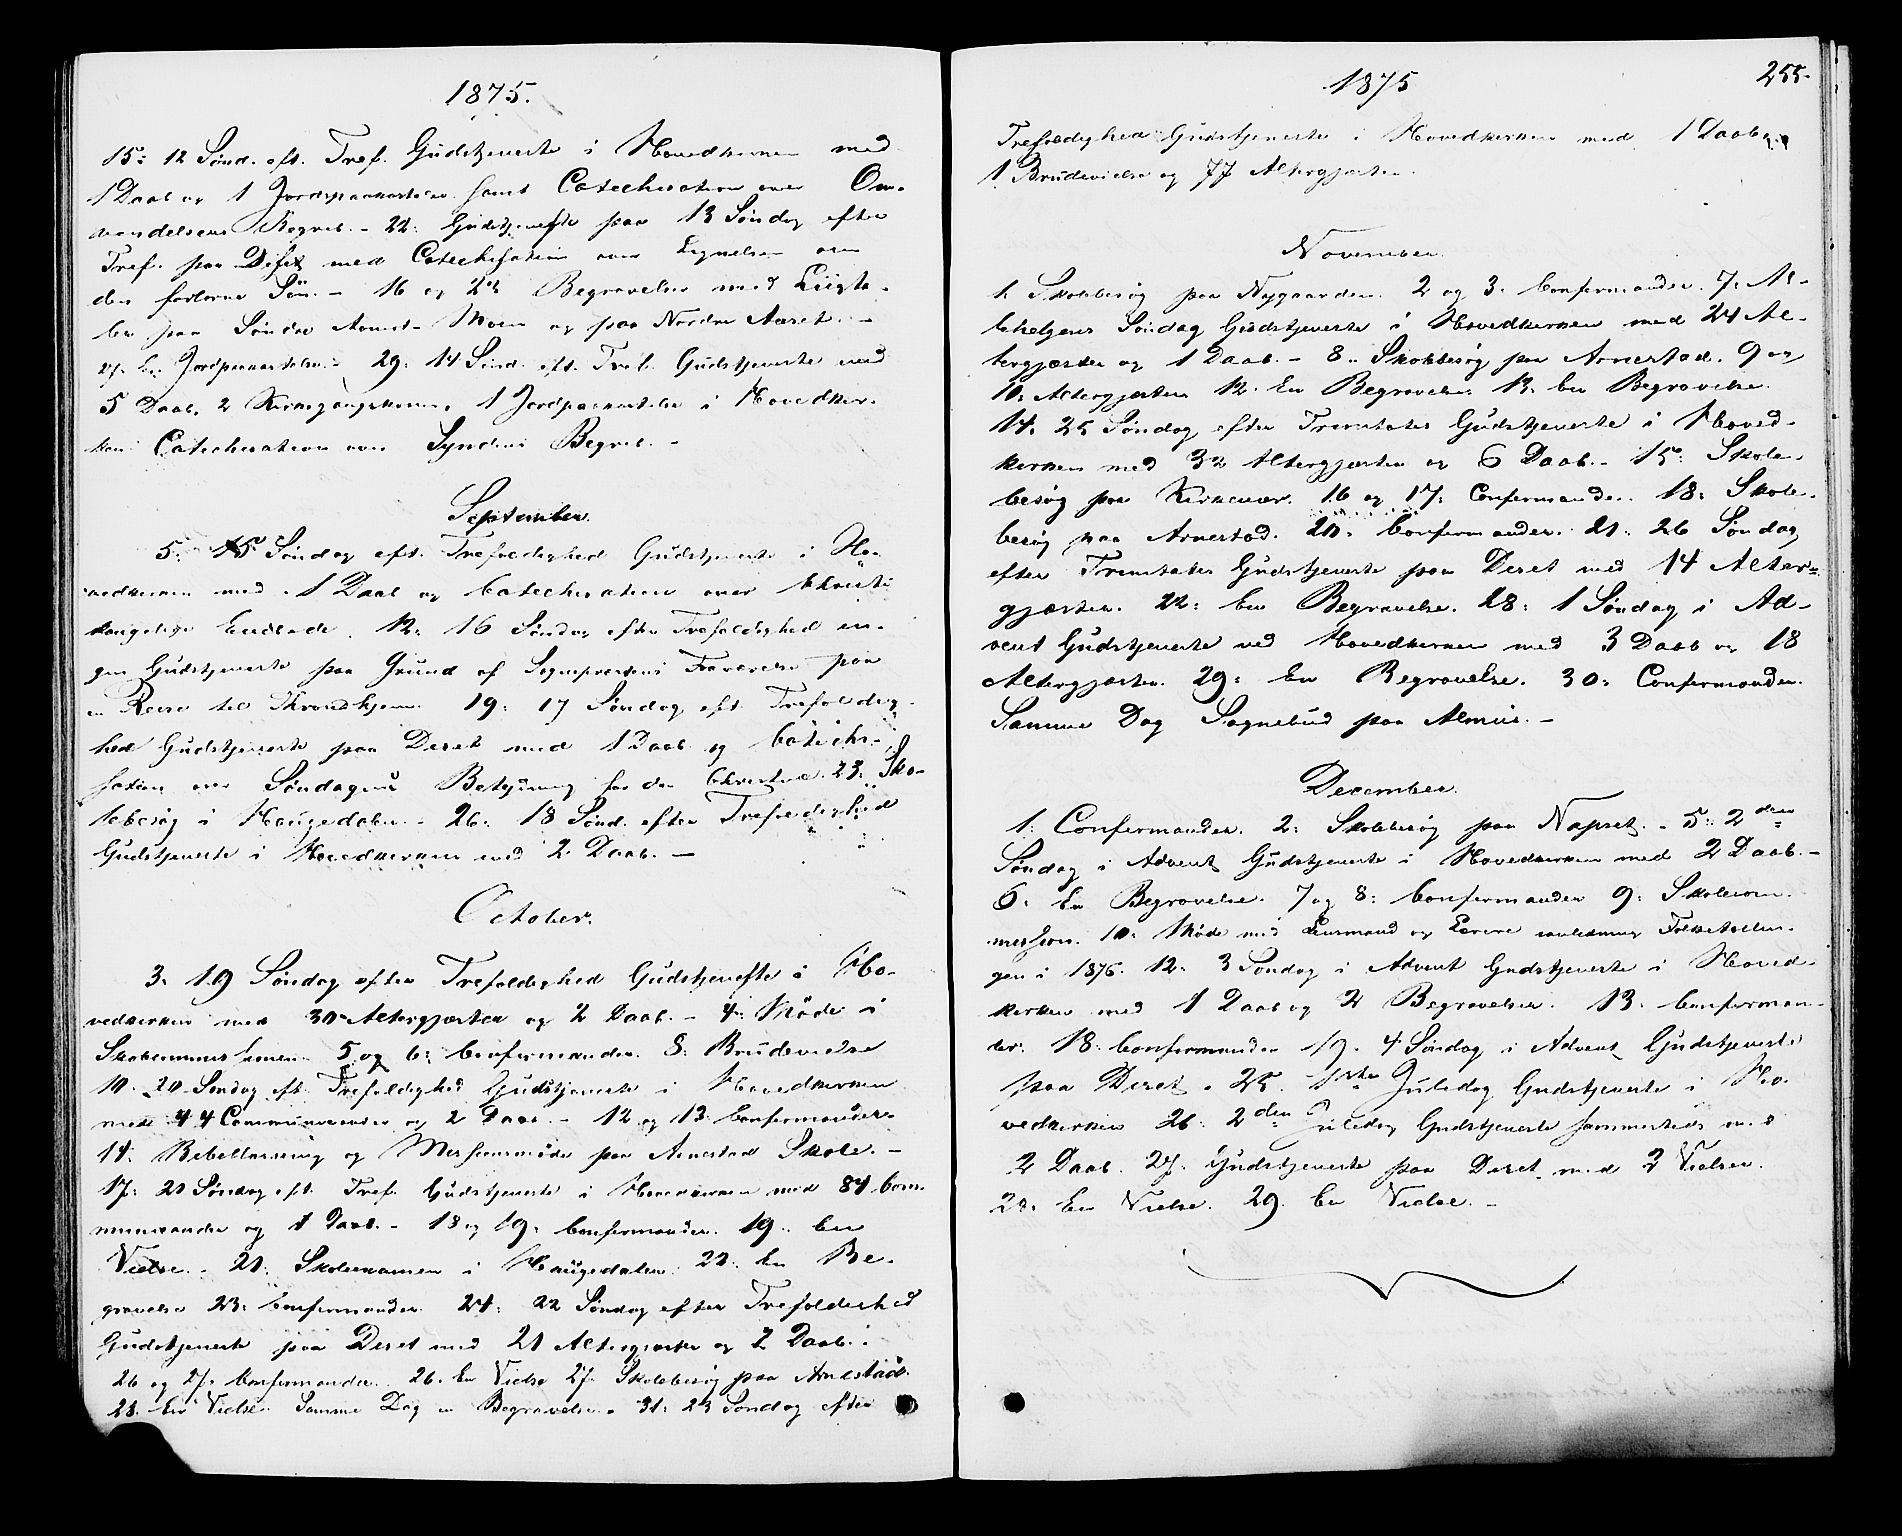 1875.
15: 12 Sönd. eft. Tref. Gudstjeneste i Hovedkirken med
1 Daab og 1 Jordpaakastelse samt Catechisation over Om-
vendelsens Begreb. - 22: Gudstjeneste paa 13 Söndag efter
Tref. paa Diset med Catechisation over Lignelsen om
den fortorne Sön. - 16 og 23 Begravelse med Liigta-
ler paa Söndre Arnest- Moen og paa Nordre Aaret. -
27. En Jordpaakastelse. - 29: 14 Sönd. eft. Tref. Gudstjeneste med
5 Daab, 2 Kirkegangskoner, 1 Jordpaakastelse i Hovedkir-
ken. Catechisation over Syndens Begreb. -
September.
5: 15 Söndag eft. Trefoldighed Gudstjeneste i Ho-
vedkirken med 1 Daab og Catechisation over Christi
kongelige Embede. 12: 16 Söndag efter Trefoldighed in-
gen Gudstjeneste paa Grund af Sognepræstens Fraværelse paa
en Reise til Throndhjem. 19: 17 Söndag eft. Trefoldig-
hed Gudstjeneste paa Deset med 1 Daab og Catechi-
sation over Söndagens Betydning for den Christne. 23: Sko-
lebesög i Haugedalen. - 26: 18 Sönd. efter Trefoldighed
Gudstjeneste i Hovedkirken med 2 Daab. -
October.
3: 19 Söndag efter Trefoldighed Gudstjeneste i Ho-
vedkirken med 30 Altergjæster og 2 Daab. - 4: Möde i
Skolecommissionen. 5 og 6: Confirmander. 8: Brudevielse
10. 20 Söndag eft. Trefoldighed Gudstjeneste i Hovedkirken
med 44 Communicanter og 2 Daab. - 12 og 13: Confirmander.
14. Bibellæsning og Missionsmöde paa Arnestad Skole. -
17: 21 Söndag eft. Tref. Gudstjeneste i Hovedkirken med 84 Com-
municanter og 1 Daab. - 18 og 19: Confirmander. 19. En
Vielse. - 21. Skoleexamen i Haugedalen. 22: En Be-
gravelse 23: Confirmander. 24: 22 Söndag efter Trefoldighed
Gudstjeneste paa Deset med 21 Altergjæster og 2 Daab.
26 og 27. Confirmander. 26. En Vielse 27. Skolebesög paa Arnestad.
28. En Vielse. Samme Dag en Begravelse. 31: 23 Söndag efter
1875
255.
Trefoldighed Gudstjeneste i Hovedkirken med 1 Daab,
1 Brudevielse og 77 Altergjæster.
November.
1. Skolebesög paa Nygaarden. 2 og 3. Confirmander. 7. Al-
lehelgens Söndag Gudstjeneste i Hovedkirken med 24 Al-
tergjæster og 1 Daab. - 8. Skolebesög paa Arnestad. 9 og
10. Altergjæster. 12. En Begravelse 13. En Begravelse.
14. 25 Söndag efter Trinitatis Gudstjeneste i Hoved-
kirken med 32 Altergjæster og 6 Daab. - 15: Skole-
besög paa Kirkenær. 16 og 17: Confirmander. 18: Skole-
besög paa Arnestad. 20: Confirmander. 21: 26 Söndag
efter Trinitatis Gudstjeneste paa Deset med 14 Alter-
gjæster. 22: En Begravelse. 28: 1 Söndag i Ad-
vent Gudstjeneste ved Hovedkirken med 3 Daab og 18
Altergjæster. 29: En Begravelse. 30: Confirmander.
Samme Dag Sognebud paa Almus. -
December.
1. Confirmander. 2: Skolebesög paa Napset. - 5: 2den
Söndag i Advent Gudstjeneste i Hovedkirken med 2 Daab. -
6. En Begravelse. 7 og 8: Confirmander 9: Skolecom-
mission. 10. Möde med Lensmand og Lærere Folketællin-
gen i 1876. 12: 3 Söndag i Advent Gudstjeneste i Hoved-
kirken med 1 Daab og 2 Begravelser. 13: Confirman-
der. 18: Confirmander 19. 4 Söndag i Advent Gudstjeneste
paa Deset. 25. 1ste Juledag Gudstjeneste i Ho-
vedkirken 26: 2den Juledag Gudstjeneste sammesteds med
2 Daab. 27. Gudstjeneste paa Deset med 3 Vielser.
28: En Vielse. 29. En Vielse. -